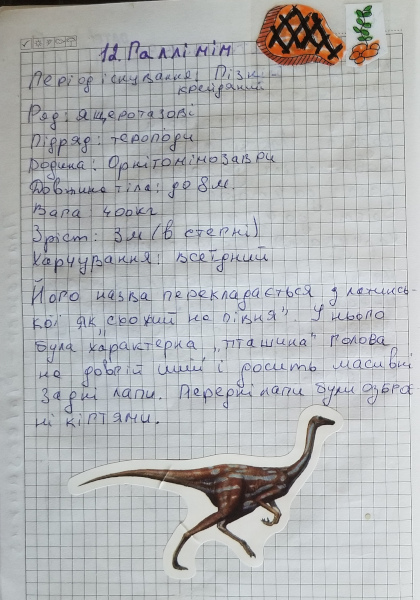 12. Галлімін
Період існування: Пізк.
крейдяний
Ряд: ящеротазові
Підряд: тероподи
Родина: Орнітомінозаври
Довжина тіла: до 8м.
Вага: 400кг
Зріст: 3м (в стегні)
Харчування: всеїдний
Його назва перекладається з латинсь-
кої як „схожий на півня". У нього
була характерна „пташина" голова
на довгій шиї і досить масивні
задні лапи. Передні лапи були озброє
ні кігтями.